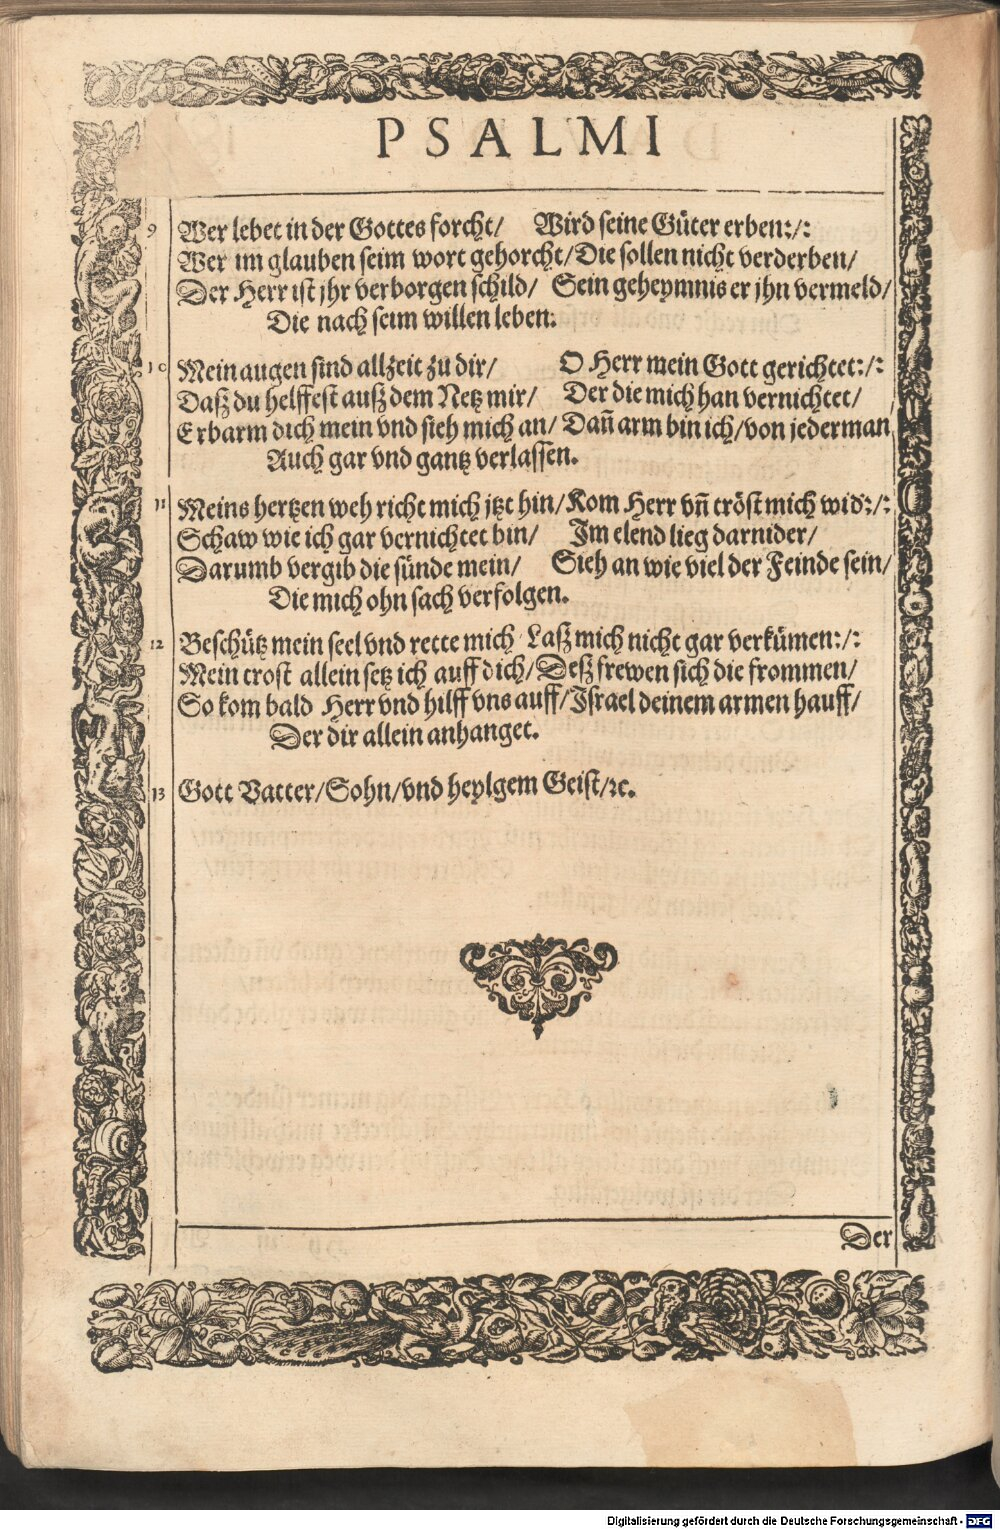 PSALMI
9 Wer lebet in der Gottes forcht/ Wird seine Güter erben:/:
Wer im glauben seim wort gehorcht/ Die sollen nicht verderben/
Der Herr ist jhr verborgen schild/ Sein geheymnis er jhn vermeld/
Die nach seim willen leben.
10 Mein augen sind allzeit zu dir/ O Herr mein Gott gerichtet:/:
Daß du helffest auß dem Netz mir/ Der die mich han vernichtet/
Erbarm dich mein vnd sieh mich an/ Dañ arm bin ich/ von jederman
Auch gar vnd gantz verlassen.
11 Meins hertzen weh richt mich jtzt hin/ Kom Herr vñ tröst mich wid:/:
Schaw wie ich gar vernichtet bin/ Im elend lieg darnider/
Darumb vergib die sünde mein/ Sieh an wie viel der Feinde sein/
Die mich ohn sach verfolgen.
12 Beschütz mein seel vnd rette mich Laß mich nicht gar verkümen:/:
Mein trost allein setz ich auff dich/ Deß frewen sich die frommen/
So kom bald Herr vnd hilff vns auff/ Israel deinem armen hauff/
Der dir allein anhanget.
13 Gott Vatter/ Sohn/ vnd heylgem Geist/ ꝛc.
Der
Digitalisierung gefördert durch die Deutsche Forschungsgemeinschaft - DFG